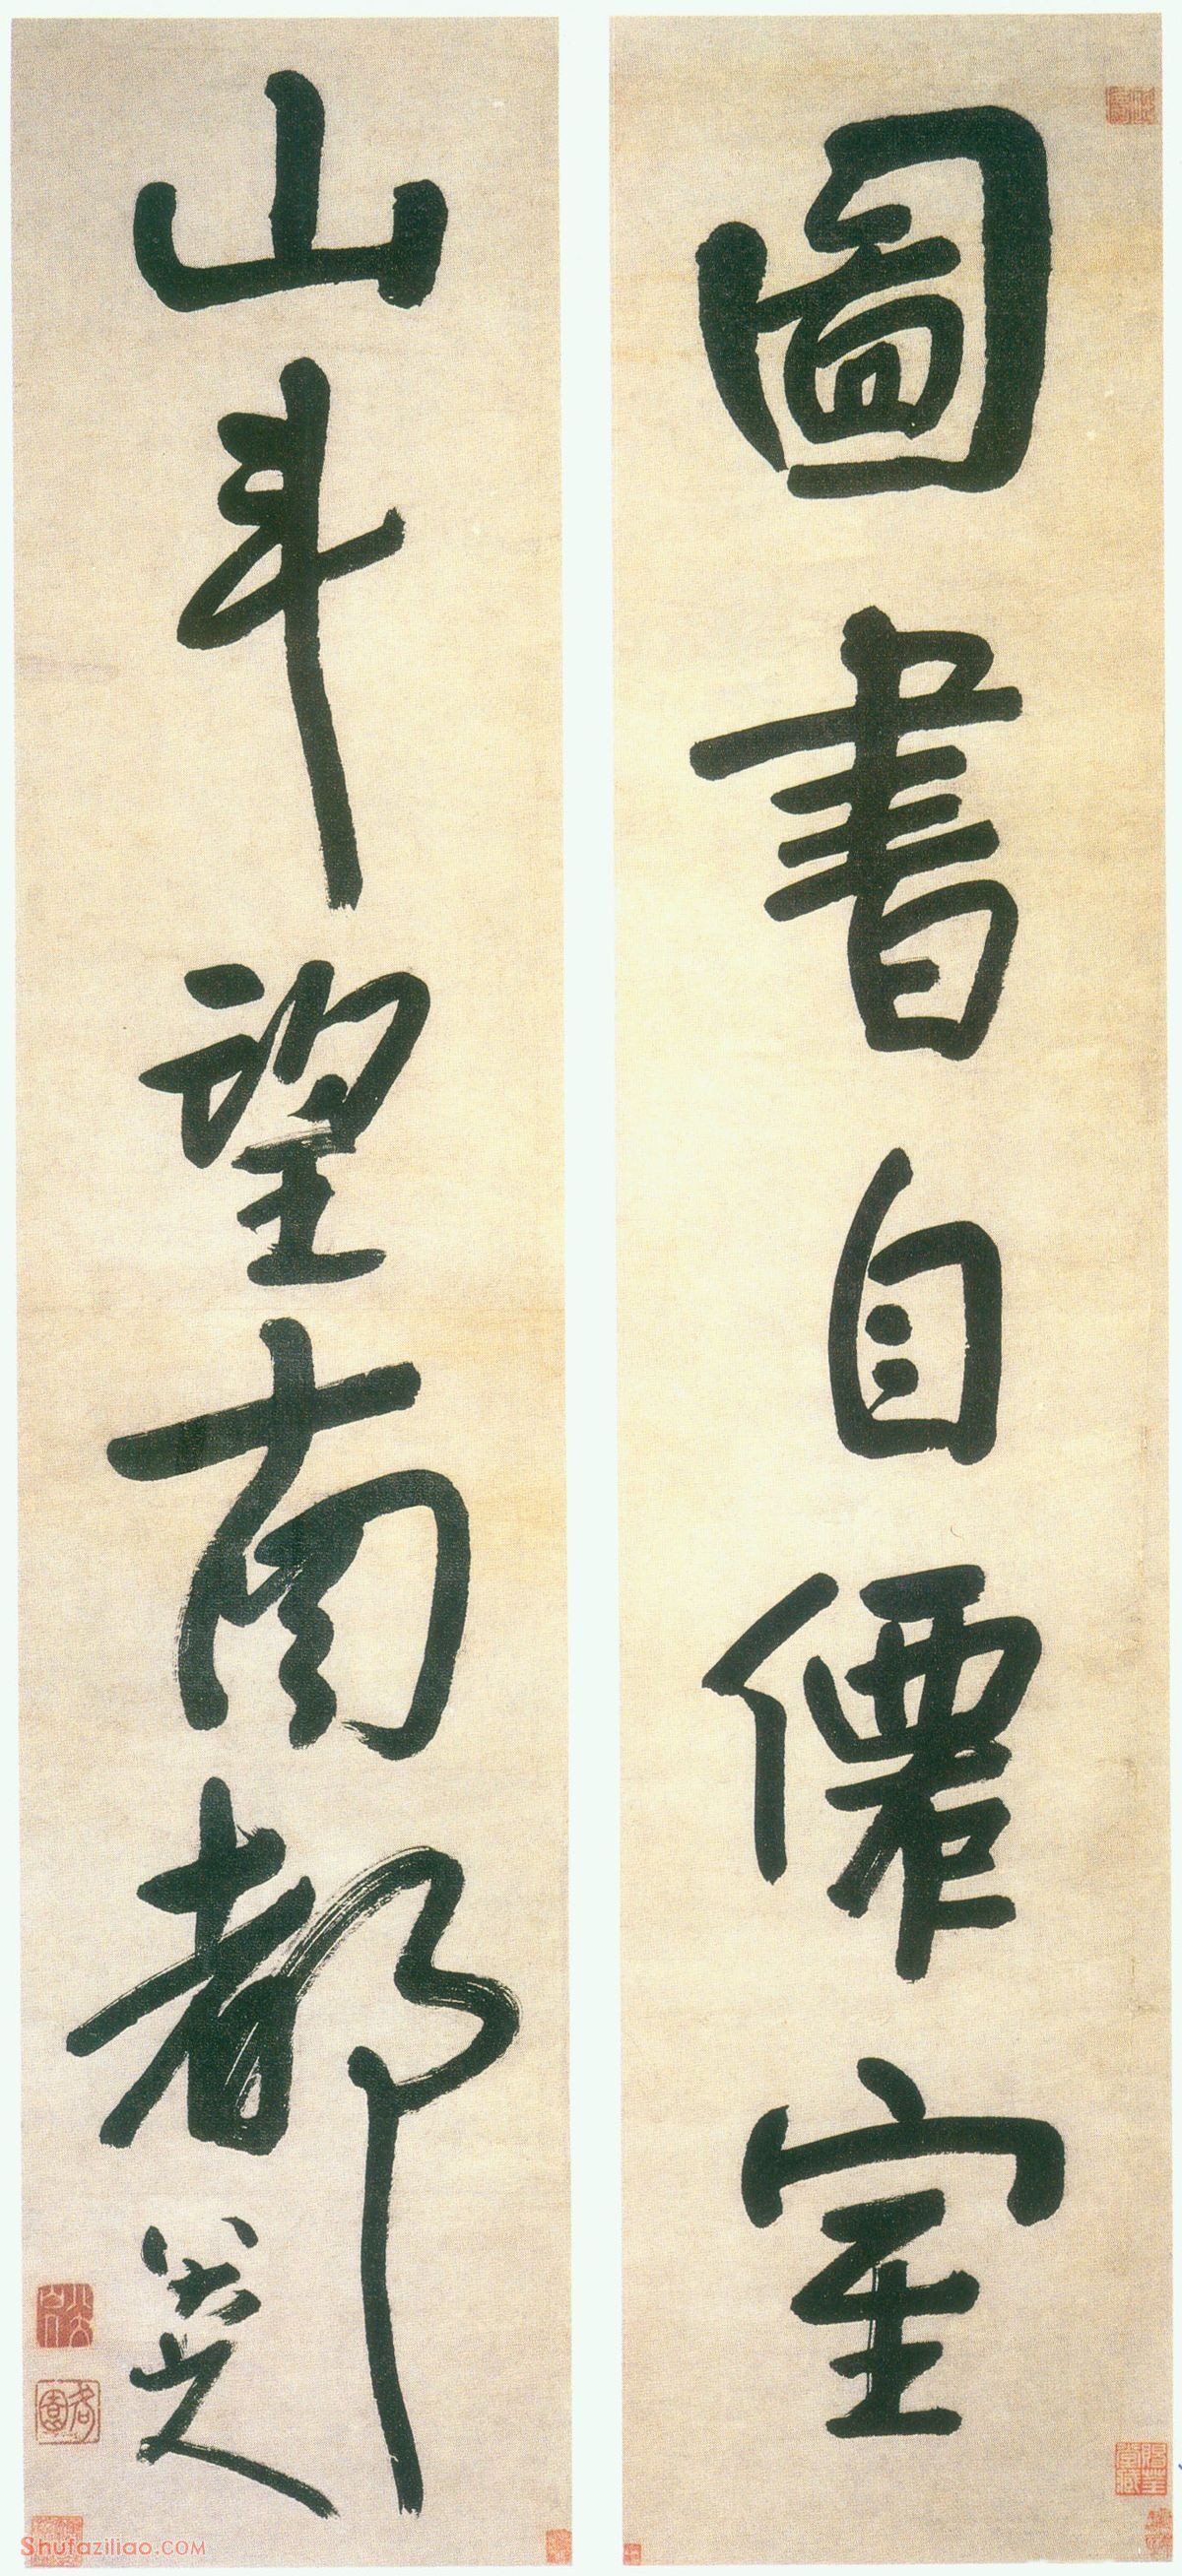 圖書自僊室
山斗望南都
八大山人
八大山人
Shufaziliao.COM